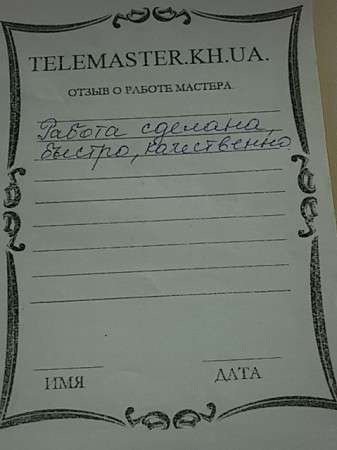 TELEMASTER.KH.UA.
ОТЗЫВ О РАБОТЕ МАСТЕРА.
Работа сделана,
быстро, качественно
ИМЯ
ДАТА